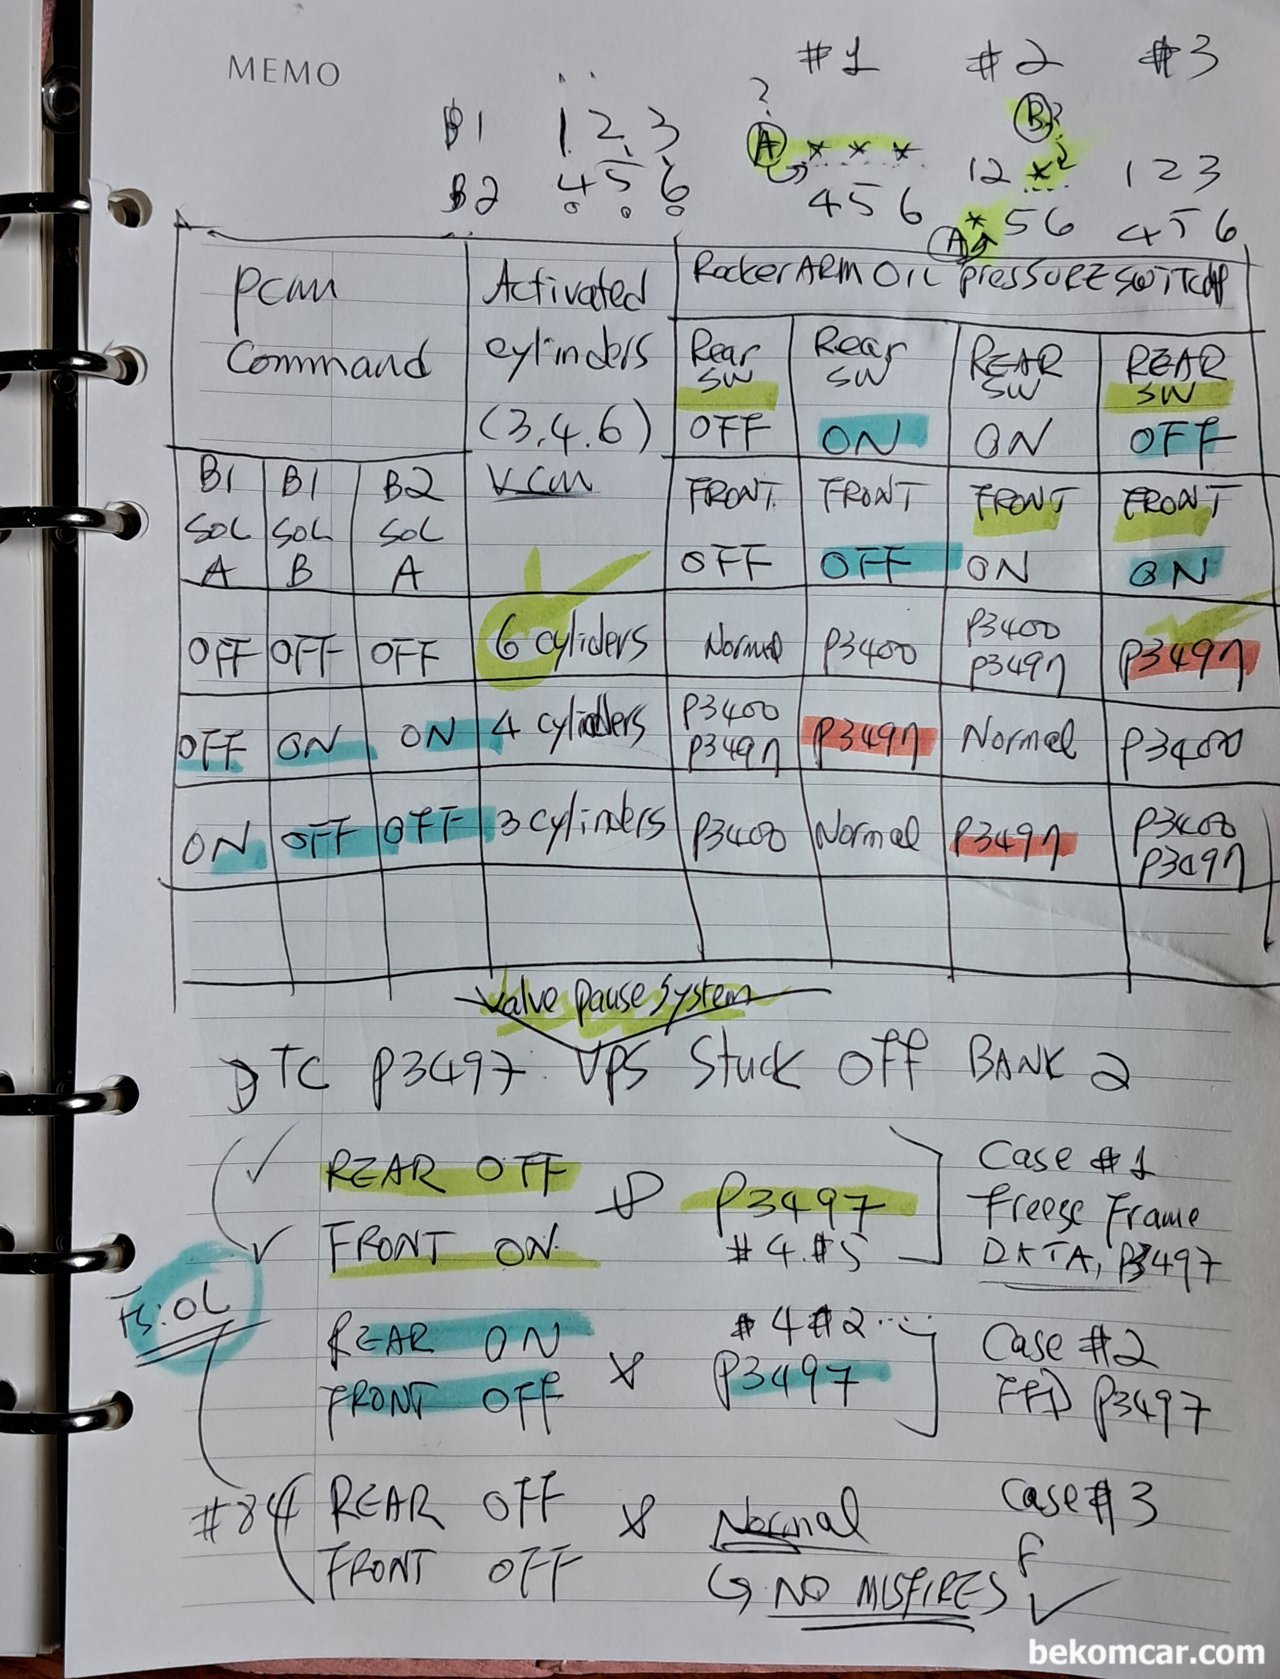 MEMO
#1 #2 #3
B1 1 2 3
?
A * * *
B?
12 * 1 2 3
B2 4 5 6
4 5 6
* 5 6
4 5 6
A
PCM
Command
Activated
cylinders
(3.4.6)
VCM
RockerARM OIL pressURE SWITCH
Rear
SW
OFF
Rear
SW
ON
REAR
SW
ON
REAR
SW
OFF
B1
SOL
A
B1
SOL
B
B2
SOL
A
FRONT.
OFF
FRONT
OFF
FRONT
ON
FRONT
ON
OFF OFF OFF 6 cyliders Normal P3400 P3400 P3497 P3497
OFF ON ON 4 cylinders P3400 P3497 P3497 Normal P3400
ON OFF OFF 3 cylinders P3400 Normal P3497 P3400 P3497
Valve pause System
DTC P3497: VPS Stuck OFF BANK 2
REAR OFF
FRONT ON
& P3497
#4.#5
Case #1
Freeze Frame
DATA, P3497
REAR ON
FRONT OFF
&
#4 #2
P3497
Case #2
FFD P3497
#84
REAR OFF
FRONT OFF
& Normal
NO MISFIRES
Case #3
bekomcar.com